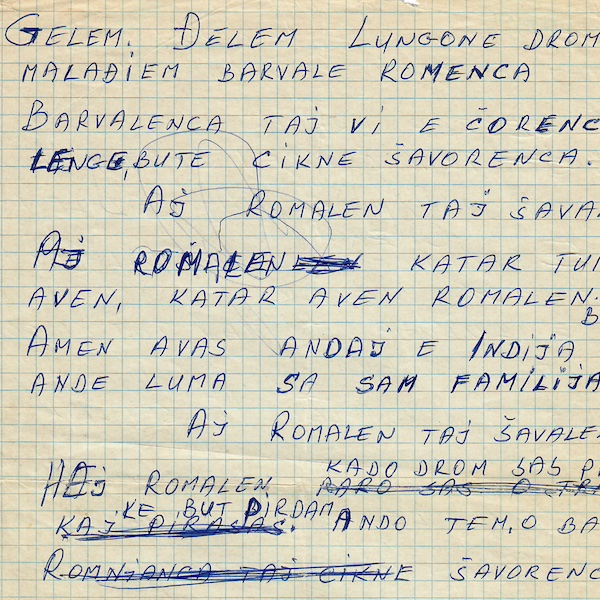 GELEM. ĐELEM LUNGONE DROM
MALAĐIEM BARVALE ROMENCA
BARVALENCA TAJ VI E ČORENC
LENGE, BUTE CIKNE ŠAVORENCA.
AJ ROMALEN TAJ ŠAVA
AJ ROMALEN KATAR TU
AVEN, KATAR AVEN ROMALEN.
B
AMEN AVAS ANDAJ E INDIJA
ANDE LUMA SA SAM FAMILIJA
AJ ROMALEN TAJ ŠAVALE
KADO DROM SAS P
HAJ ROMALEN BARO SAS O TR
KE BUT PIRDAM
KAJ PIRASAS. ANDO TEM, O BA
ROMNJANCA TAJ CIKNE ŠAVORENC